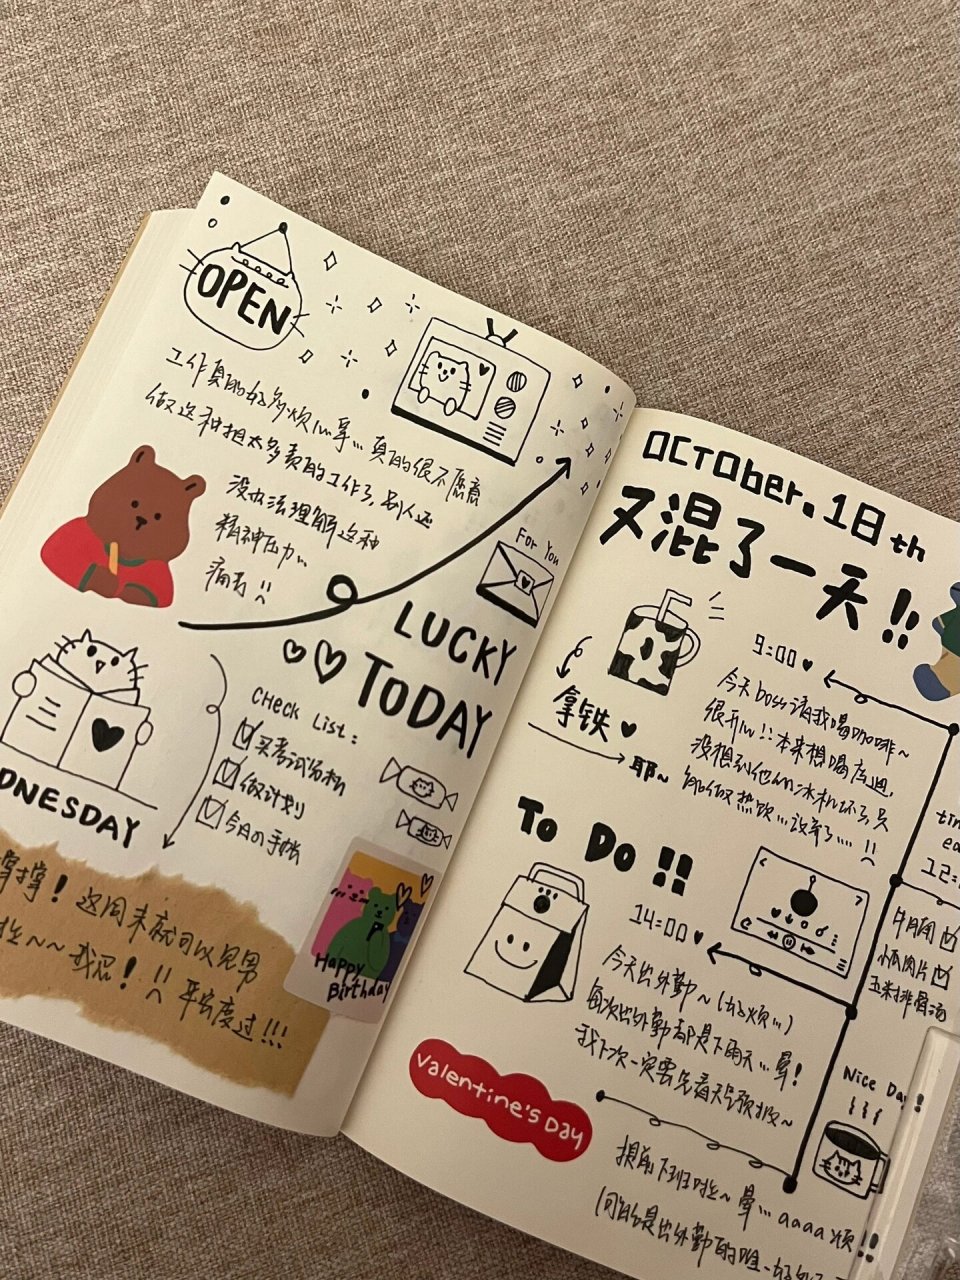 OPEN
工作真的好多烦心事... 真的很不愿意
做这种担太多责的工作了, 别人还
没办法理解这种
精神压力...
痛苦!!
For You
LUCKY
TODAY
CHeck List:
买考试资料
做计划
今日の手帐
DNESDAY
撑! 这周末就可以见男
啦~~ 我忍! 平安度过!!!
Happy
Birthday
OCTober. 18th
又混了一天!!
9:00
拿铁
耶~
今天boss请我喝咖啡~
很开心!! 本来想喝
没想到他们冰机坏了, 只
能做热饮...
To Do!!
14:00
今天出外勤~(好烦...)
每次出外勤都是下雨天... 晕!
我下次一定要先看天气预报~
12:
牛肉
肉片
玉米排骨汤
Valentine's Day
Nice Day!!
提前下班啦~ 晕... aaaa 烦!!
是出外勤的唯一好